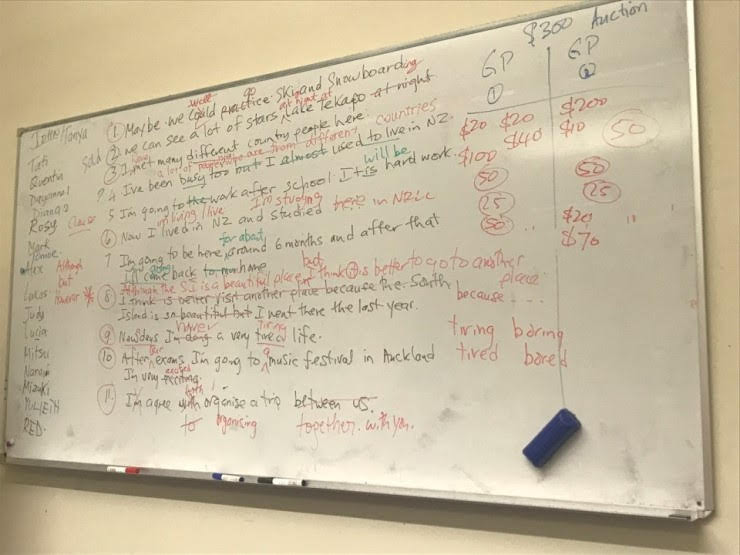 $300 Auction
GP ①
GP ②
John/Tanya
Tati
Quentin
Diana
Rosy
Mark
Alex
Lucas
Judy
Lucia
Mitsu
Nanami
Mizuki
RED.
Clause
Although
but
However
Sold
could go
① Maybe we could practice Ski and Snowboarding
at night at
② We can see a lot of stars Lake Tekapo at night
③ I met many different country people here!
a lot of people who are from different countries
4 I've been busy too but I almost used to live in NZ.
will be
5 I'm going to the work after school. It is hard work.
I'm living / live I'm studying
⑥ Now I lived in NZ and studied here in NZLC
for about
7 I'm going to be here around 6 months and after that
I'll come back to my home
but
⑧ Although the SI is a beautiful place, I think it is better to go to another place
I think is better visit another place because the South because ....
Island is so beautiful but I went there the last year.
never tiring
⑨ Nowadays I'm doing a very tired life.
our a
⑩ After exams I'm going to music festival in Auckland
excited
I'm very exciting.
with
11. I'm agree with organise a trip between us.
to organising together. with you.
$20 $20
$40
$100
50
25
50
$200
$10
50
50
25
$20 " "
$70
tiring boring
tired bored